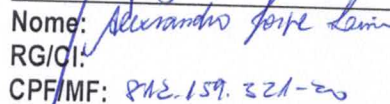 Nome: Alessandro Jorge
RG/CI:
CPF/MF: 812.159.321-20